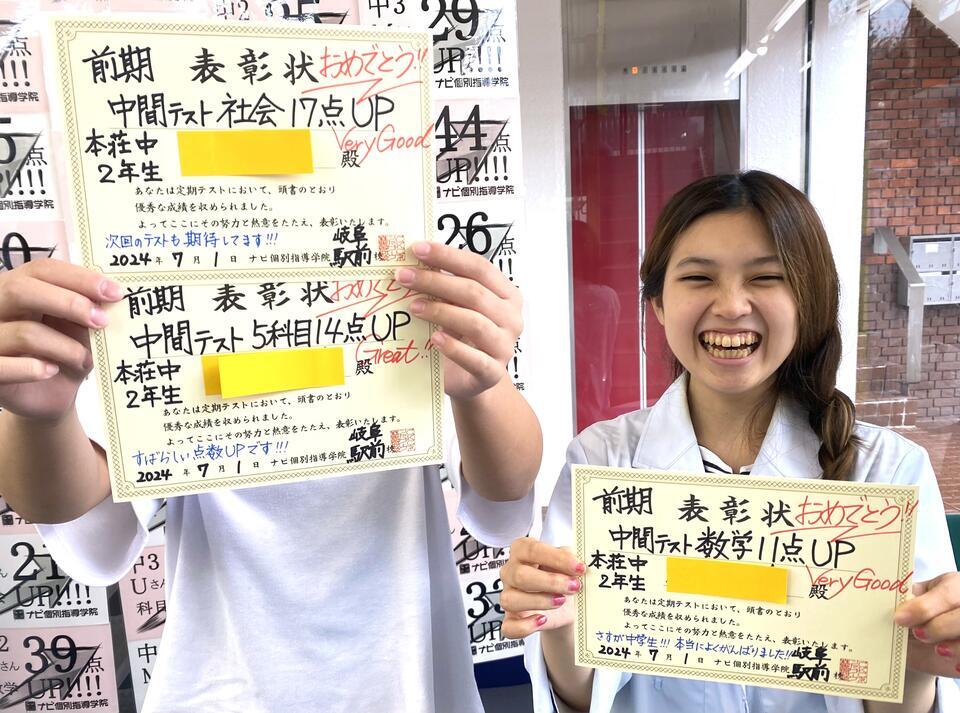 前期 表彰状 おめでとう!!
中間テスト 社会 17点UP
Very Good
本荘中
2年生
殿
あなたは定期テストにおいて、頭書のとおり
優秀な成績を収められました。
よってここにその努力と熱意をたたえ、表彰いたします。
次回のテストも期待してます!!!
2024年 7月 1日 ナビ個別指導学院 岐阜駅前校
前期 表彰状
中間テスト 5科目14点UP
Great!!
本荘中
2年生
殿
あなたは定期テストにおいて、頭書のとおり
優秀な成績を収められました。
よってここにその努力と熱意をたたえ、表彰いたします。
すばらしい点数UPです!!!
2024年 7月 1日 ナビ個別指導学院 岐阜駅前校
前期 表彰状 おめでとう!!
中間テスト 数学11点UP
Very Good
本荘中
2年生
殿
あなたは定期テストにおいて、頭書のとおり
優秀な成績を収められました。
よってここにその努力と熱意をたたえ、表彰いたします。
さすが中学生!!! 本当によくがんばりました!!
2024年 7月 1日 ナビ個別指導学院 岐阜駅前校
中3
29点
UP!!!
ナビ個別指導学院
44点
UP!!!!
ナビ個別指導学院
26点
21点
UP!!!!
ナビ個別指導学院
中3
Uさん
科目
39点
UP!!!!
ナビ個別指導学院
ナビ個別指導学院